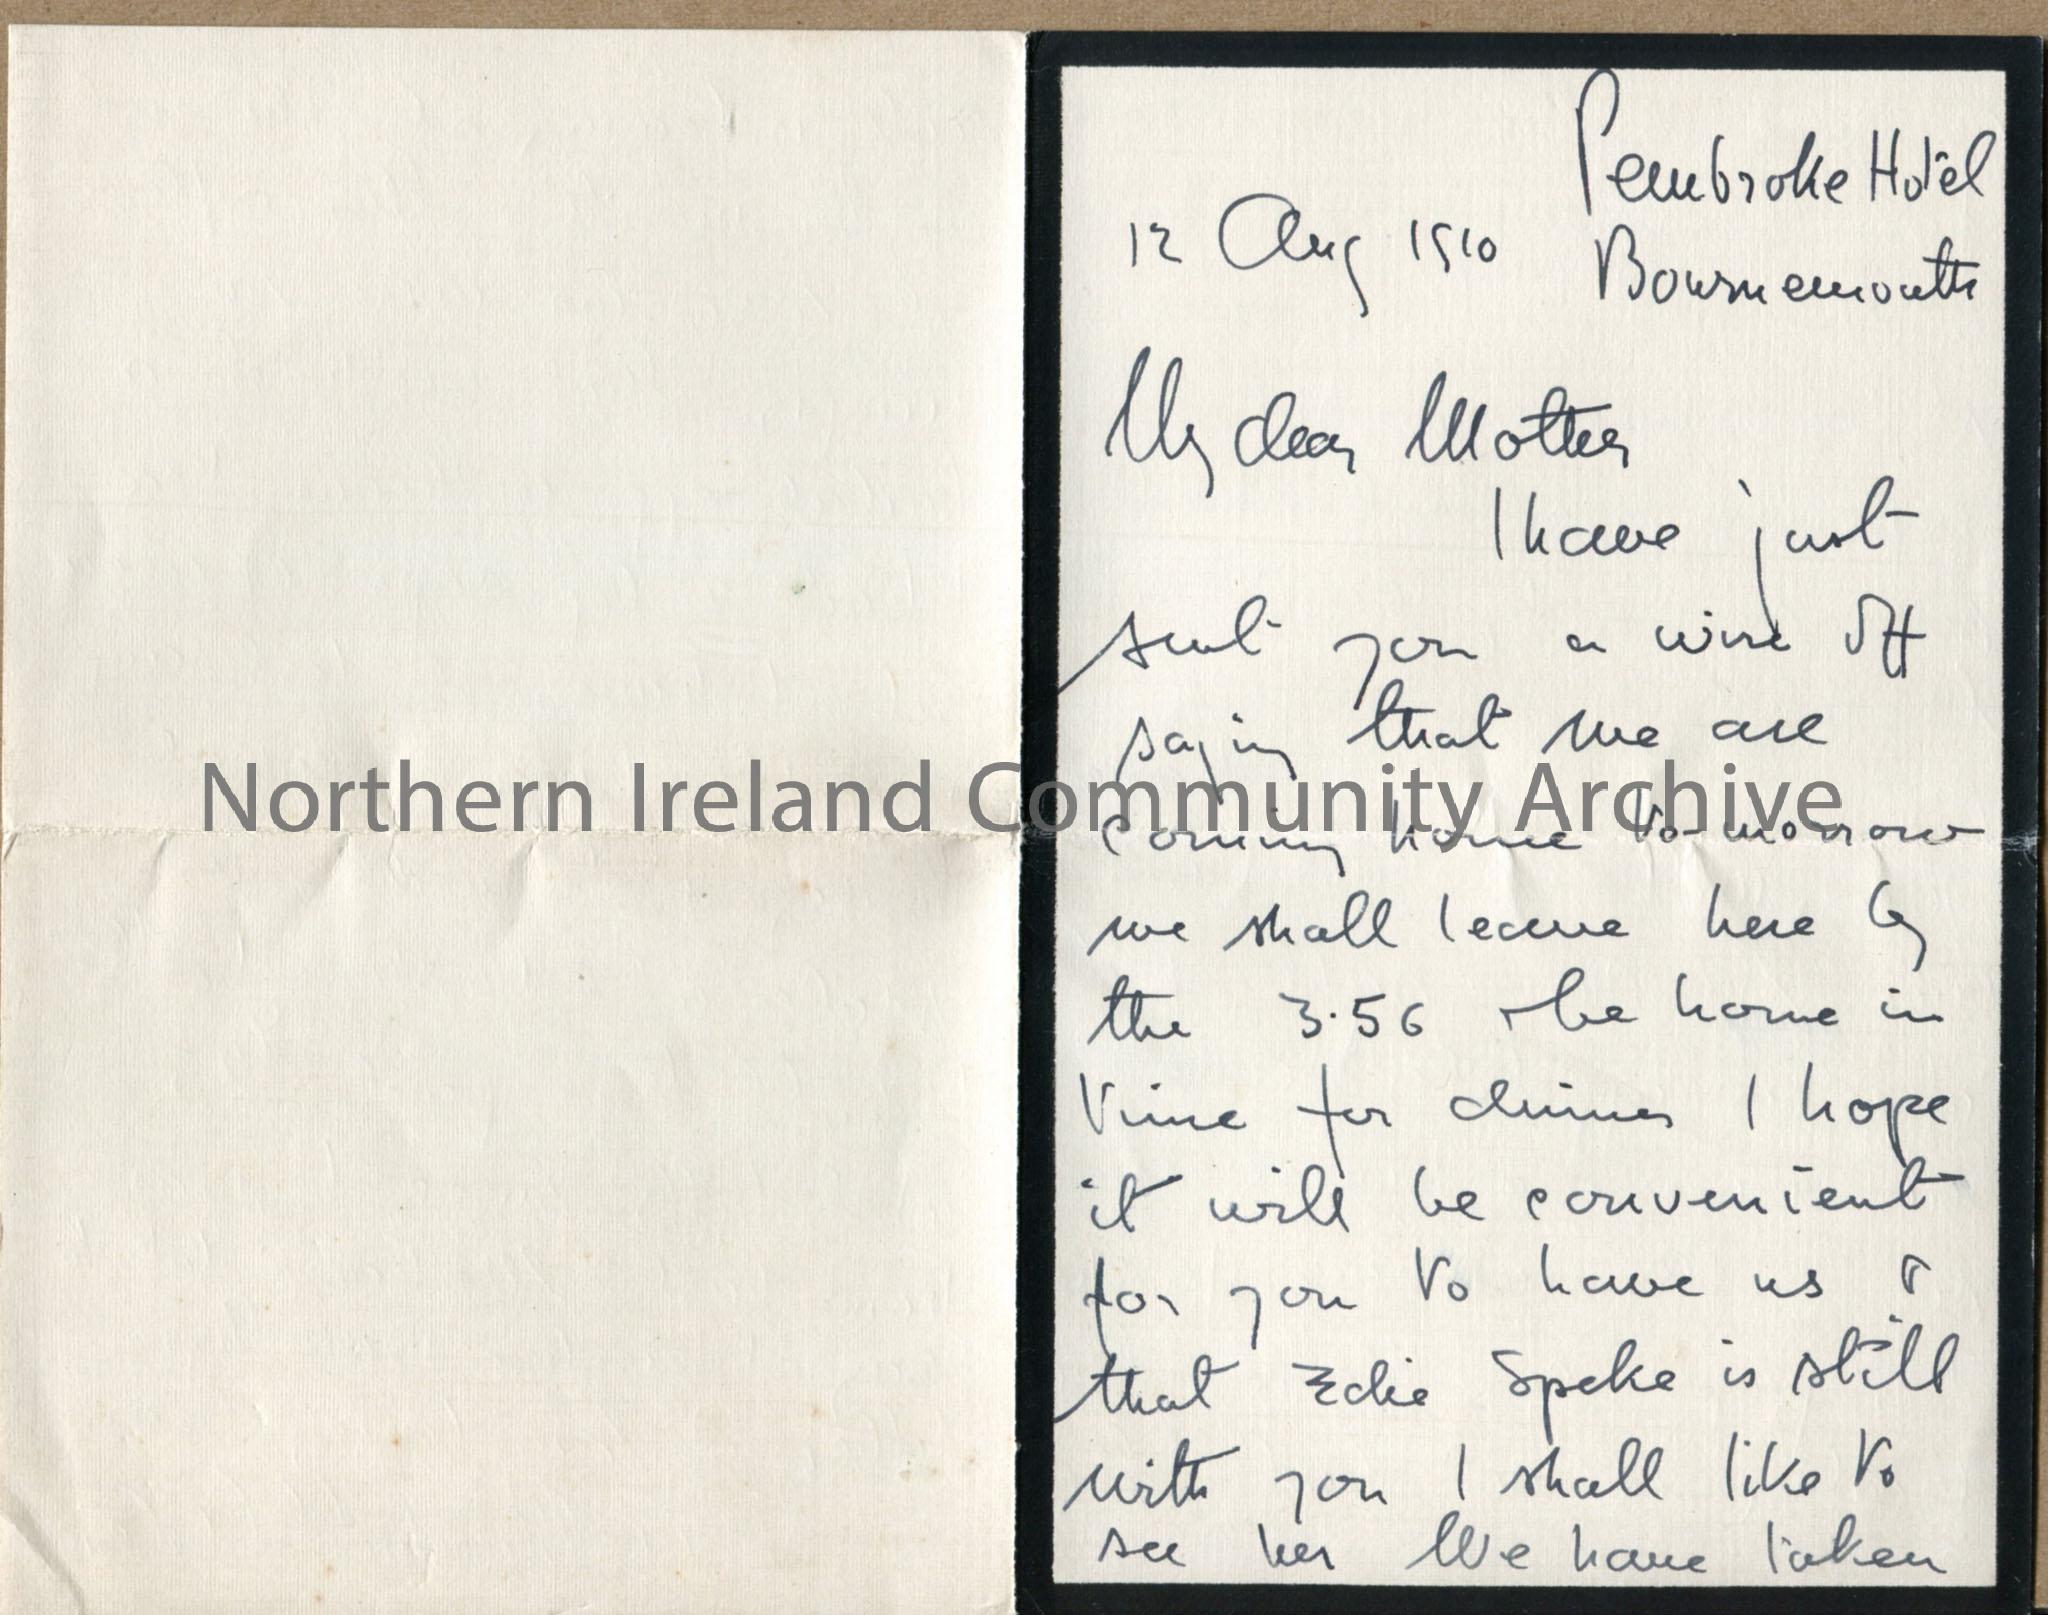 Pembroke Hotel
12 Aug 1910 Bournemouth
My dear Mother
I have just
sent you a wire off
saying that we are
Northern Ireland Community Archive
coming home to-morrow
we shall leave here by
the 3.56 & be home in
time for dinner I hope
it will be convenient
for you to have us &
that Edie Speke is still
with you I shall like to
see her We have taken